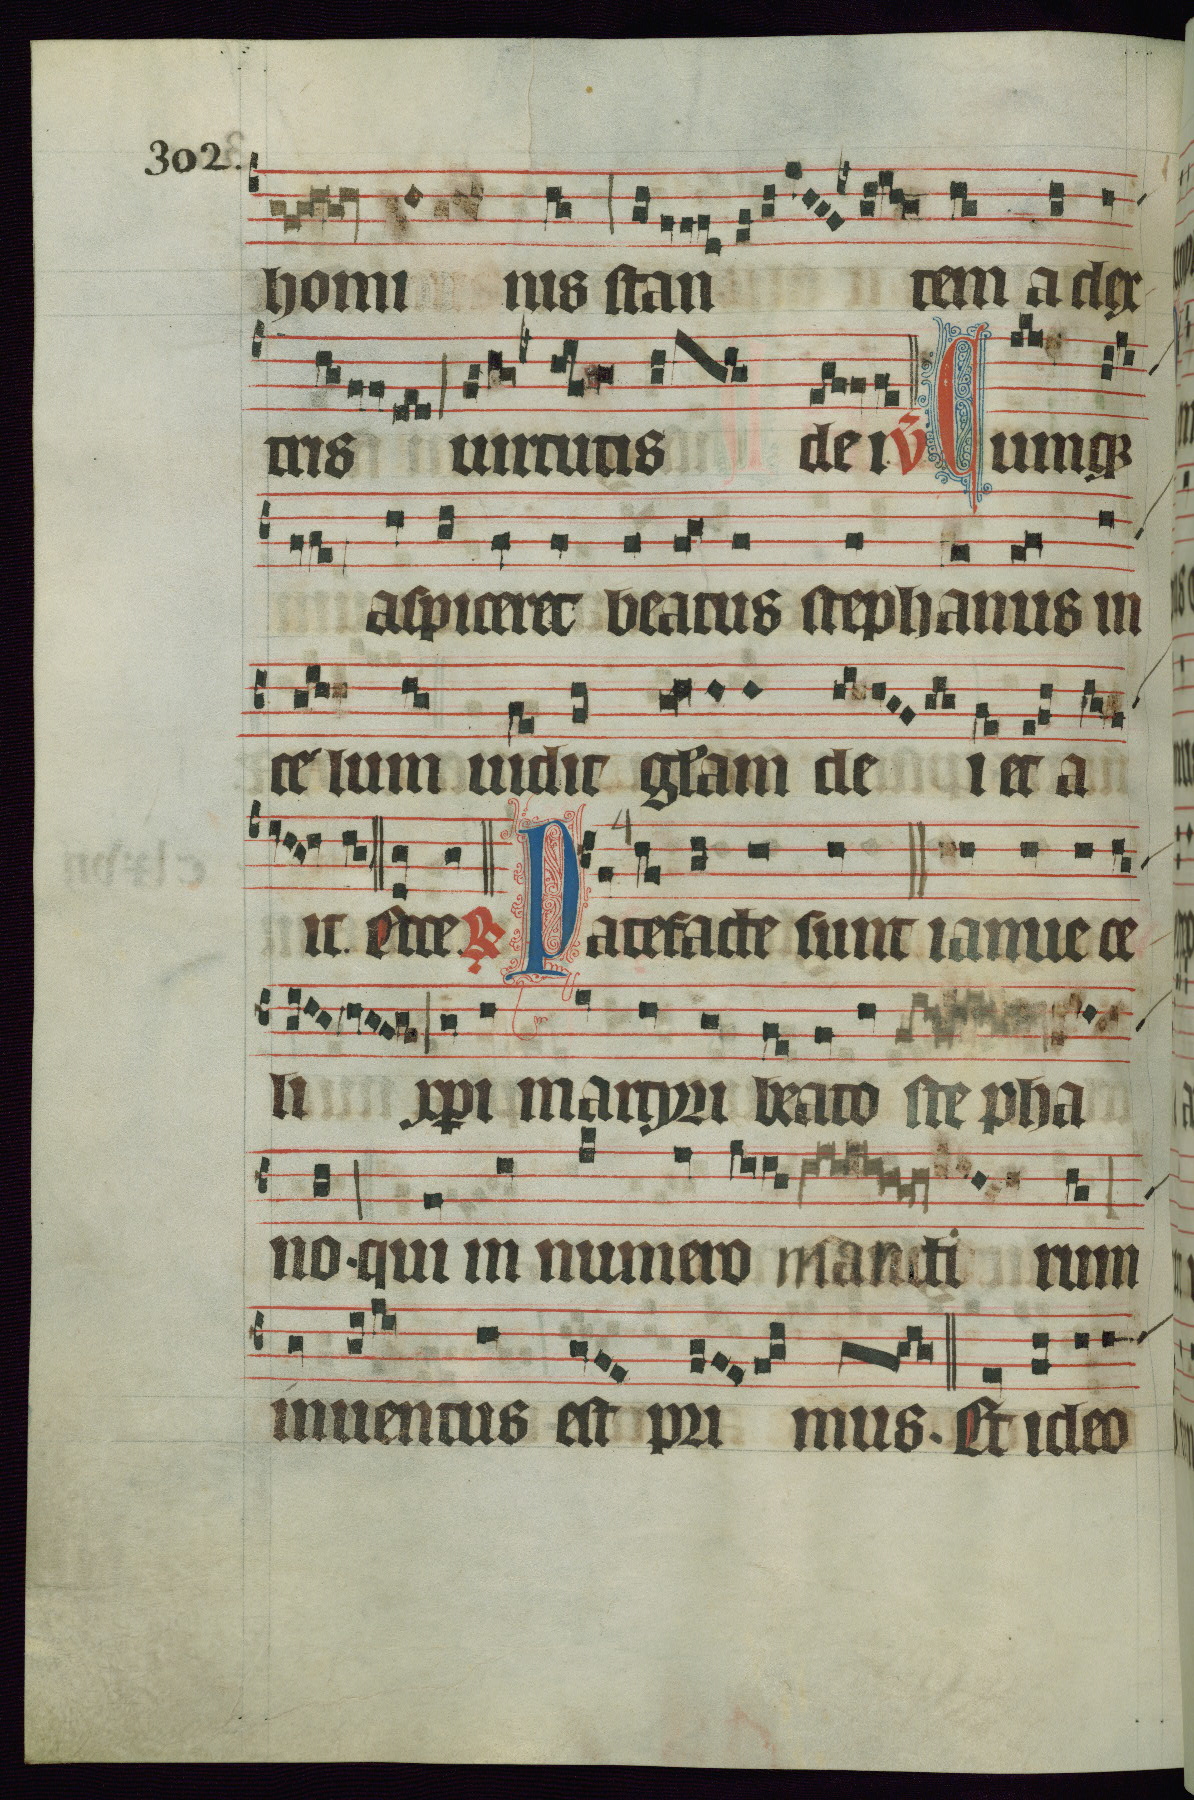 302.
homi nis stan tem a dex
tris uirtutis de i. V̄ Cumq3
aspiceret beatus stephanus in
ce lum uidit gl̄am de i et a
it. Ecce. R̷ Patefacte sunt ianue ce
li xp̄i martyri beato ste pha
no. qui in numero martiri rum
inuentus est pri mus. Et ideo